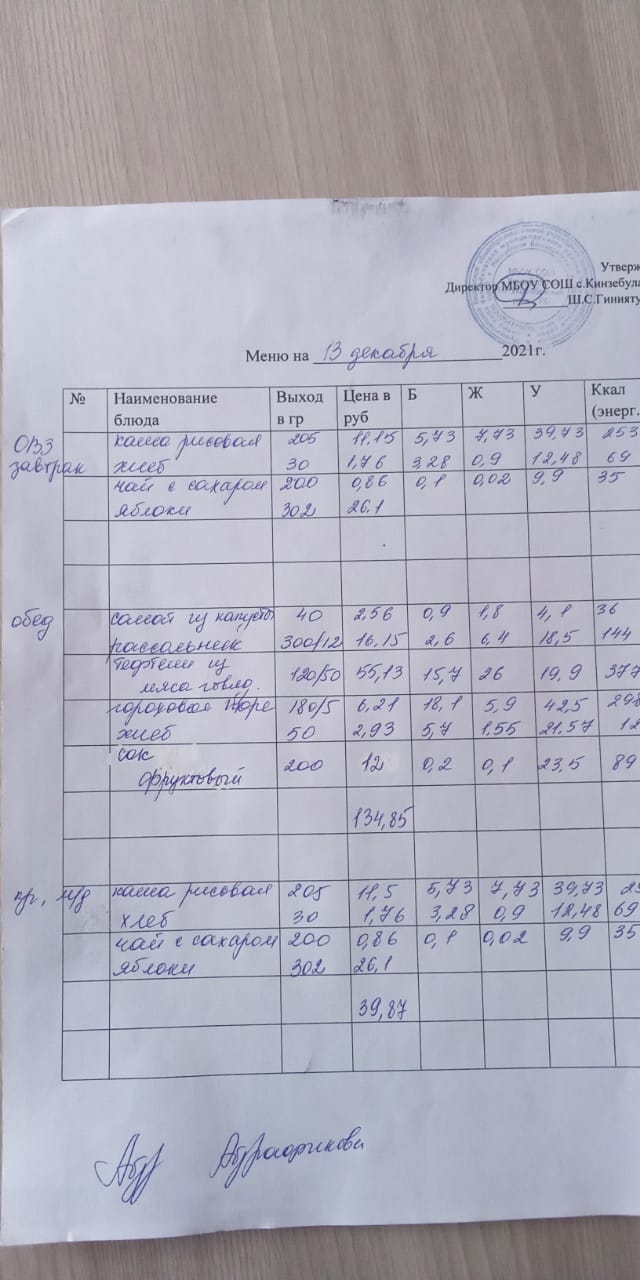 Утверж
Директор МБОУ СОШ с.Кинзебула
Ш.С.Гинияту
Меню на 13 декабря 2021г.
№ Наименование блюда Выход в гр Цена в руб Б Ж У Ккал (энерг.
ОВЗ каша рисовая 205 11,15 5,73 7,73 39,73 253
завтрак хлеб 30 1,76 3,28 0,9 12,48 69
чай с сахаром 200 0,86 0,1 0,02 9,9 35
яблоки 302 26.1
обед салат из капусты 40 2,56 0,9 1,8 4,1 36
рассольник 300/12 16.15 2,6 6,4 18,5 144
тефтели из
мяса говяд. 120/50 55,13 15,7 26 19,9 377
гороховое пюре 180/5 6,21 18,1 5,9 42,5 298
хлеб 50 2,93 5,7 1.55 21.57 12
сок
фруктовый 200 12 0,2 0,1 23,5 89
134,85
каша рисовая 205 11,5 5,73 7,73 39,73 25
хлеб 30 1,76 3,28 0,9 12,48 69
чай с сахаром 200 0,86 0,1 0,02 9,9 35
яблоки 302 26.1
39,87